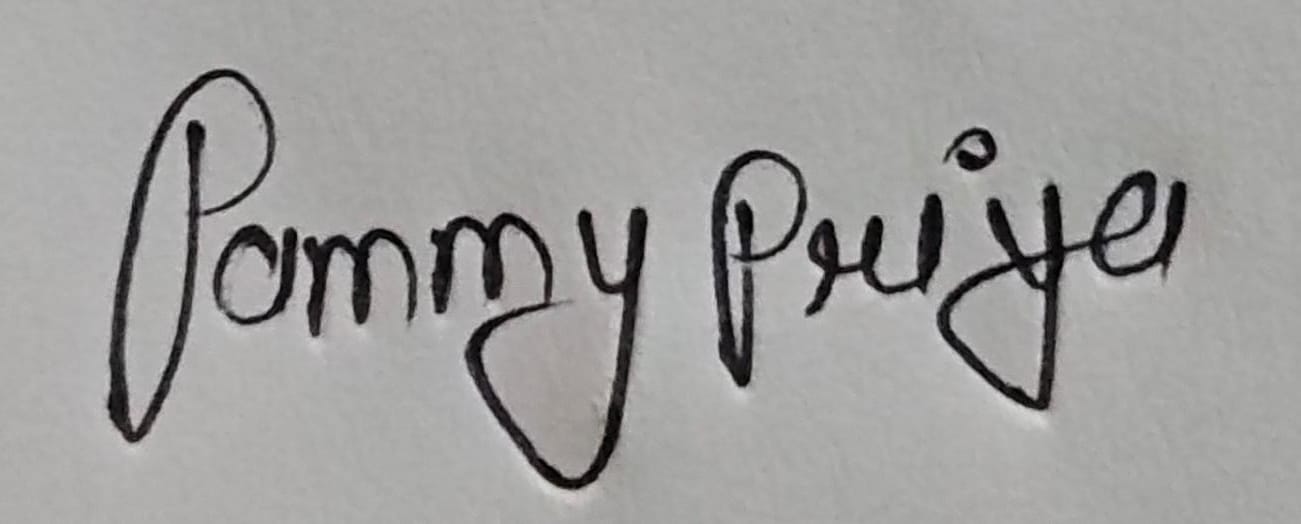 Pammy Priya